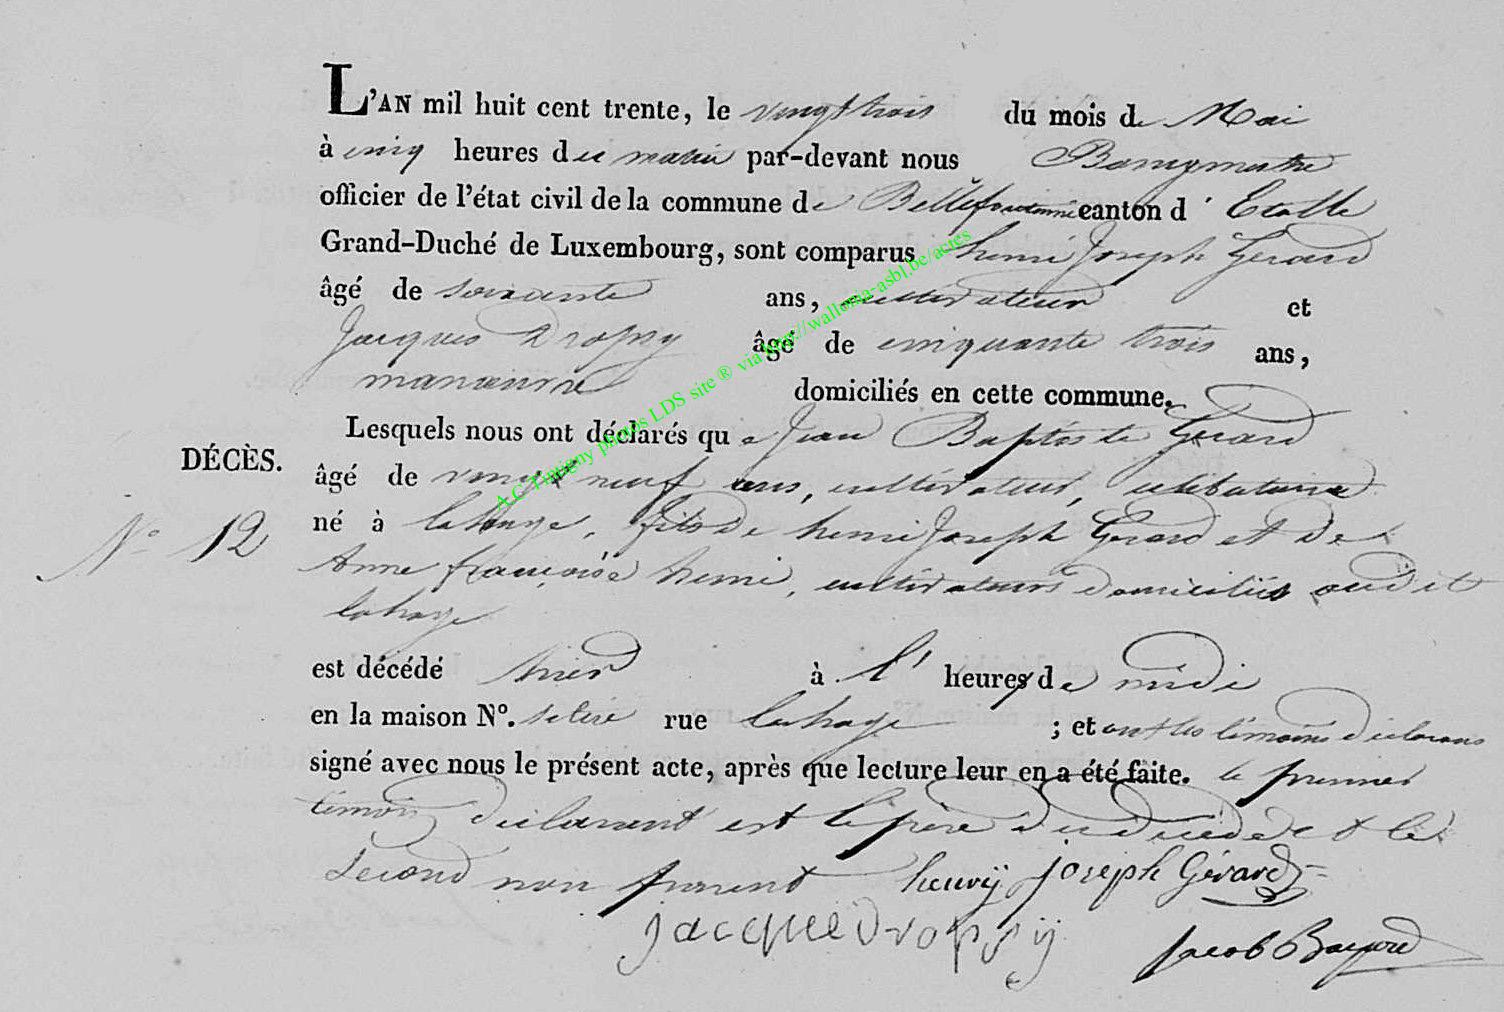 L'AN mil huit cent trente, le vingt trois du mois de Mai
à cinq heures du matin par-devant nous Bourgmestre
officier de l'état civil de la commune de Bellefontaine canton d'Etalle
Grand-Duché de Luxembourg, sont comparus henri Joseph Gerard
âgé de soixante ans, cultivateur et
Jacques Dropsy âgé de cinquante trois ans,
manoeuvre domiciliés en cette commune.
Lesquels nous ont déclarés que Jean Baptiste Gerard
DÉCÈS.
âgé de vingt neuf ans, cultivateur, celibataire
né à lahage, fils de henri Joseph Gerard et de
N° 12
Anne françoise henri, cultivateurs domiciliés audit
lahage
est décédé hier à l' heures de midi
en la maison N°. rue lahage ; et ont les témoins déclarans
signé avec nous le présent acte, après que lecture leur en a été faite. le premier
témoin declarant est le père du decedé et le
second non parent henrÿ joseph Gérard
jacque Dropsÿ
Jacob Bayard
A.C. Tintigny photos LDS site ® via http://wallonia-asbl.be/actes